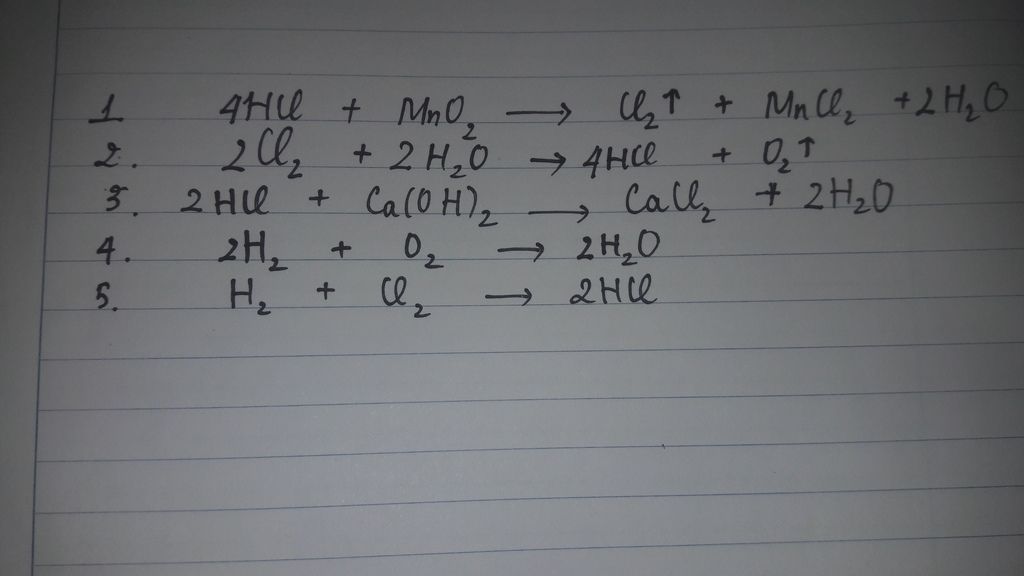 1 4HCl + MnO₂ → Cl₂↑ + MnCl₂ + 2H₂O
2. 2Cl₂ + 2H₂O → 4HCl + O₂↑
3. 2HCl + Ca(OH)₂ → CaCl₂ + 2H₂O
4. 2H₂ + O₂ → 2H₂O
5. H₂ + Cl₂ → 2HCl